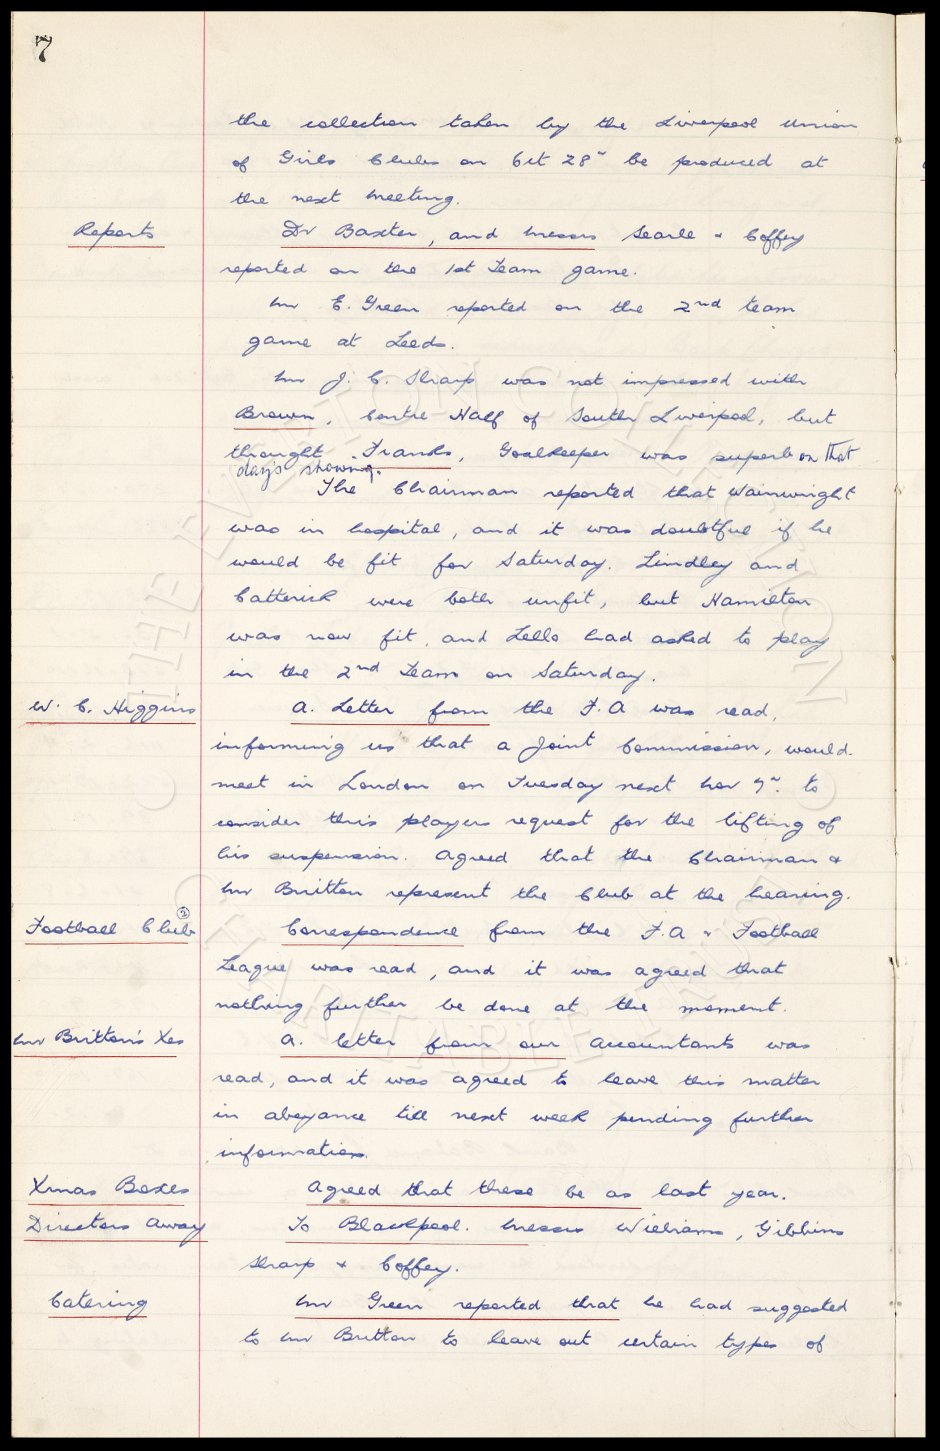 7
the collection taken by the Liverpool Union
of Girls Clubs on Oct 28" be produced at
the next meeting.
Reports
Dr Baxter, and Messrs Searle & Coffey
reported on the 1st Team game.
Mr E. Green reported on the 2nd team
game at Leeds.
Mr J. C. Sharp was not impressed with
Brown, Centre Half of South Liverpool, but
thought Franks, Goalkeeper was superb on that
day's showing.
The Chairman reported that Wainwright
was in hospital, and it was doubtful if he
would be fit for Saturday. Lindley and
Catterick were both unfit, but Hamilton
was now fit, and Lello had asked to play
in the 2nd Team on Saturday.
W. C. Higgins
A. Letter from the F.A was read,
informing us that a Joint Commission, would
meet in London on Tuesday next Nov 7". to
consider this players request for the lifting of
his suspension. Agreed that the Chairman &
Mr Britton represent the Club at the hearing.
Football Club (2)
Correspondence from the F.A & Football
League was read, and it was agreed that
nothing further be done at the moment.
Mr Britton's
A. letter from our accountants was
read, and it was agreed to leave this matter
in abeyance till next week pending further
information.
Xmas Boxes
Agreed that these be as last year.
Directors Away
To Blackpool. Messrs Williams, Gibbins
Sharp & Coffey.
Catering
Mr Green reported that he had suggested
to Mr Britton to leave out certain types of
THE EVERTON COLLECTION
CHARITABLE TRUST